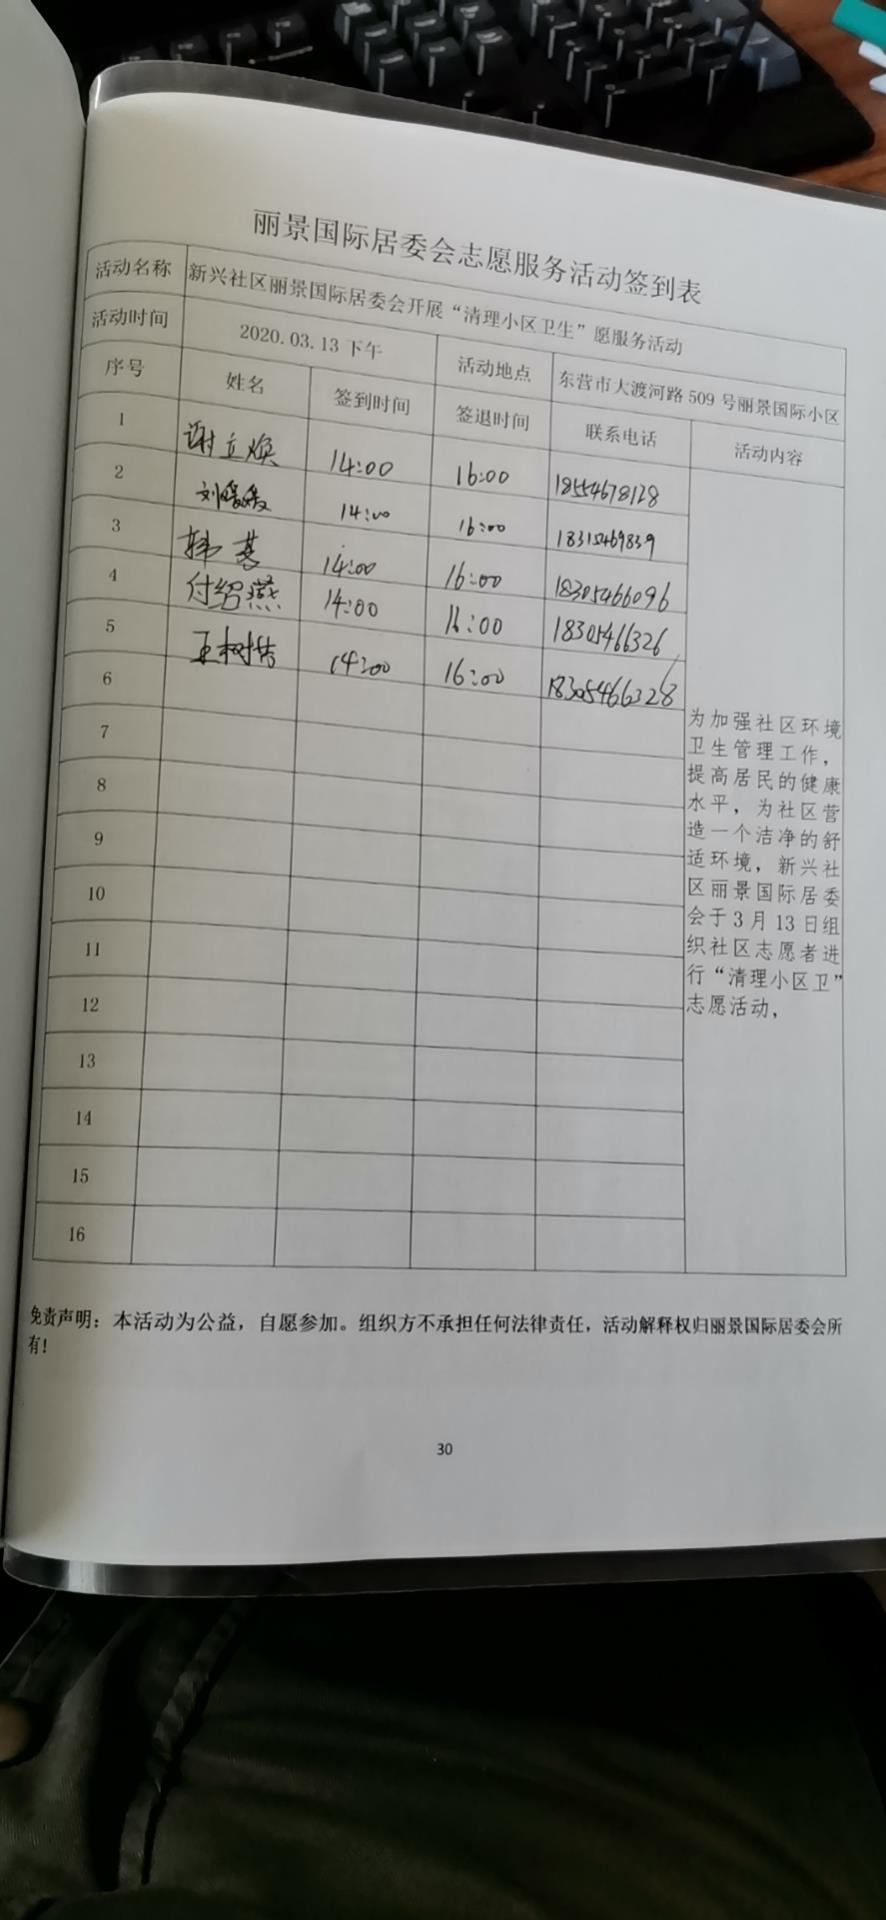 丽景国际居委会志愿服务活动签到表
活动名称 新兴社区丽景国际居委会开展“清理小区卫生”愿服务活动
活动时间 2020.03.13下午 活动地点 东营市大渡河路509号丽景国际小区
序号 姓名 签到时间 签退时间 联系电话 活动内容
1 谢立焕 14:00 16:00 18554678128
2 刘媛媛 14:00 16:00 18315469839
3 韩 14:00 16:00 18305466096
4 付绍燕 14:00 16:00 18305466326
5 王树 14:00 16:00 18305466328
6
7
8
9
10
11
12
13
14
15
16
为加强社区环境
卫生管理工作,
提高居民的健康
水平,为社区营
造一个洁净的舒
适环境,新兴社
区丽景国际居委
会于3月13日组
织社区志愿者进
行“清理小区卫”
志愿活动,
免责声明:本活动为公益,自愿参加。组织方不承担任何法律责任,活动解释权归丽景国际居委会所
有!
30